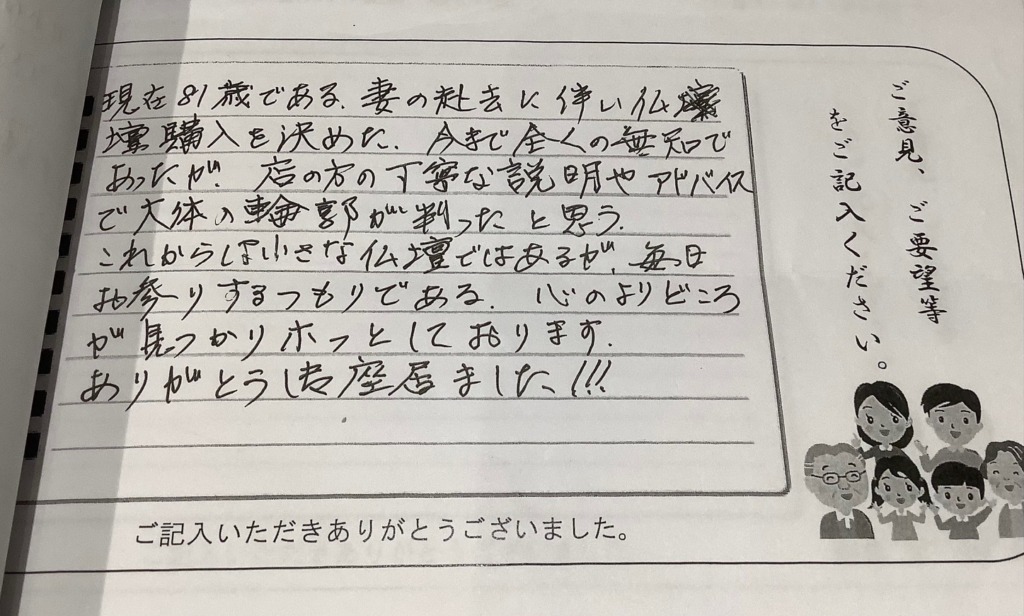 ご意見、ご要望等
をご記入ください。
現在81歳である. 妻の赴去に伴い仏
壇購入を決めた. 今まで全くの無知で
あったが. 店の方の丁寧な説明やアドバイス
で大体の輪郭が判ったと思う.
これからは小さな仏壇ではあるが, 毎日
お参りするつもりである. 心のよりどころ
が見つかりホッとしております.
ありがとう御座居ました!!!
ご記入いただきありがとうございました。